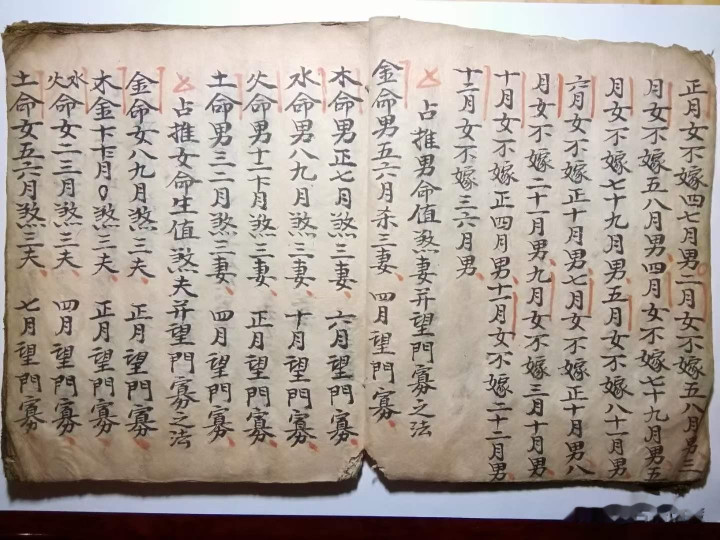 正月女不嫁四七月男二月女不嫁五八月男三
月女不嫁五八月男四月女不嫁七十九月男五
月女不嫁七十九月男五月女不嫁八十一月男
六月女不嫁正十月男七月女不嫁正十月男八
月女不嫁二十一月男九月女不嫁三月十月男
十月女不嫁正四月男十一月女不嫁二十二月男
十二月女不嫁三六月男
占推男命值煞妻并望門寡之法
金命男五六月杀三妻 四月望門寡
木命男正七月煞三妻 六月望門寡
水命男八九月煞三妻 十月望門寡
火命男十一卞月煞三妻 正月望門寡
土命男三二月煞三妻 四月望門寡
占推女命生值煞夫并望門寡之法
金命女八九月煞三夫 正月望門寡
木金十卞月煞三夫 正月望門寡
水火命女二三月煞三夫 四月望門寡
土命女五六月煞三夫 七月望門寡